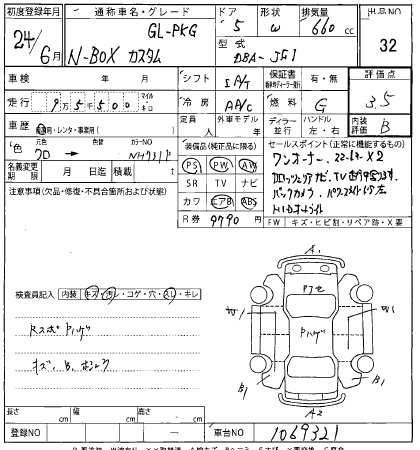 初度登録年月
通称車名・グレード
ドア
形状
排気量
出品NO
24年
6月
G・L-PKG
N-BOX カスタム
5
W
660cc
型式
DBA-JF1
32
車検
年 月
シフト
IA/T
保証書
有・無
評価点
3.5
走行
9万5千500
マイル
キロ
冷房
AA/C
燃料
G
車歴
自家用・レンタ・事業用( )
定員
人
外車モデル
年
ディーラー
並行
ハンドル
左・右
内装
評価
B
色
元色
色替
カラーNO
クロ
→
装備品(純正品に限る)
セールスポイント(正常に機能するもの)
PS PW AW
SR TV ナビ
カワ エアB ABS
R券 9790円
ワンオーナー
名義変更
期限
月 日迄
積載
t
注意事項(欠品・修復・不具合箇所および状態)
バックカメラ
HIDオートライト
FW キズ・ヒビ割・リペア跡・X要
検査員記入
内装
キズ・汚レ・コゲ・穴・スレ・キレ
Rスポ Pハゲ
キズ、B、
A1
Pアセ
W1
Pハゲ
W1
B1
B1
A2
長さ cm
幅 cm
高さ cm
登録NO
車台NO
1069321